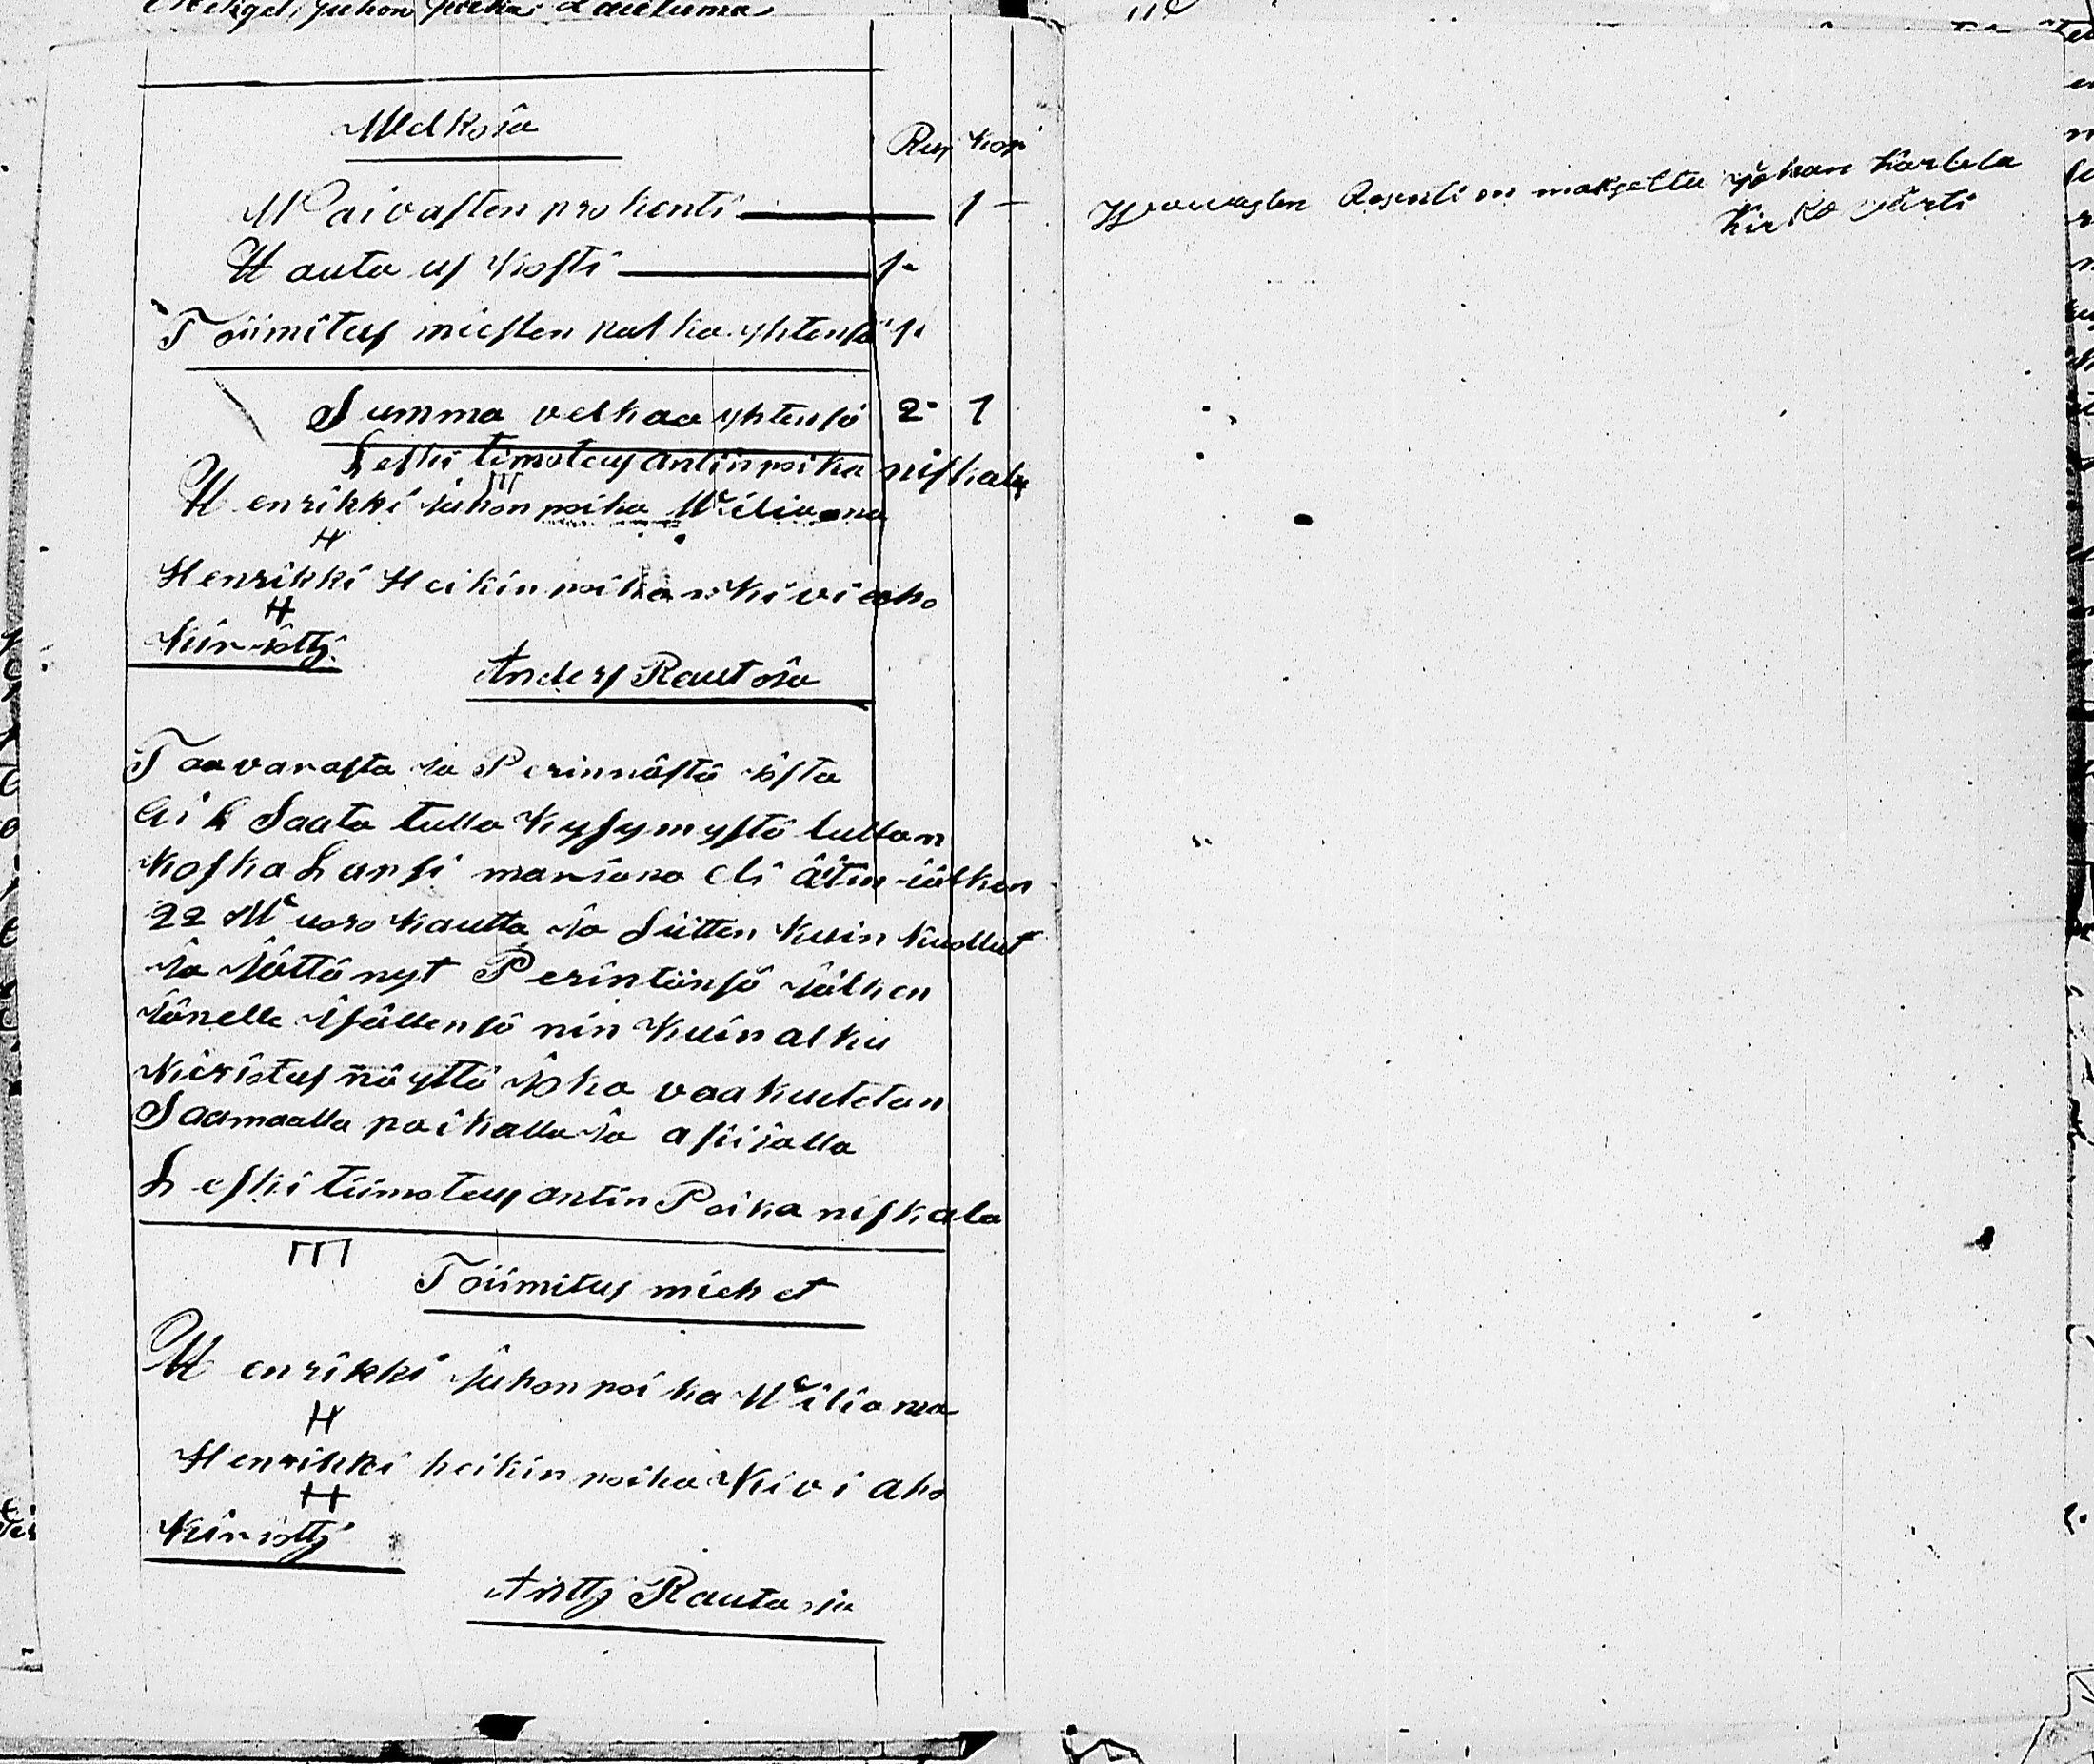 Juhon poika Lautuma
Welkoja
Rup Kop
Waivasten prosenti 1 –
Hauta us kosti 1 -
Toiimitus miesten palka yhtensä 1 -
Summa velkaa yhtensä 2 - 1
Leski timoteus antiin poika niskala
III
Henrikki Juhon poika Wiliama
H
Henrikki Heikin poika Kiviaho
H
Kirjotti
Anders Rautoja
Taavarasta ja Perinnöstä josta
Ei k Saata tulla kysymystä lullan
koska Lapsi marjana eli äitin jälken
22 Wuoro kautta ja siitten kuin kuollut
ja Jättä nyt Perintönsä jälken
jänelle isällensä nin kuin alku
kirjotus näyttä joka vaakutetan
Saamaalla paikalla ja asijalla
Leski tiimoteus antin Poika niskala
III
Toiimitus miehet
Henrikki Juhon poika Wiliama
H
Henrikki heikin poika Kivi aho
H
Kirjotti
Antti Rautaoja
on maksettu Johan Karlela
Kirko värti